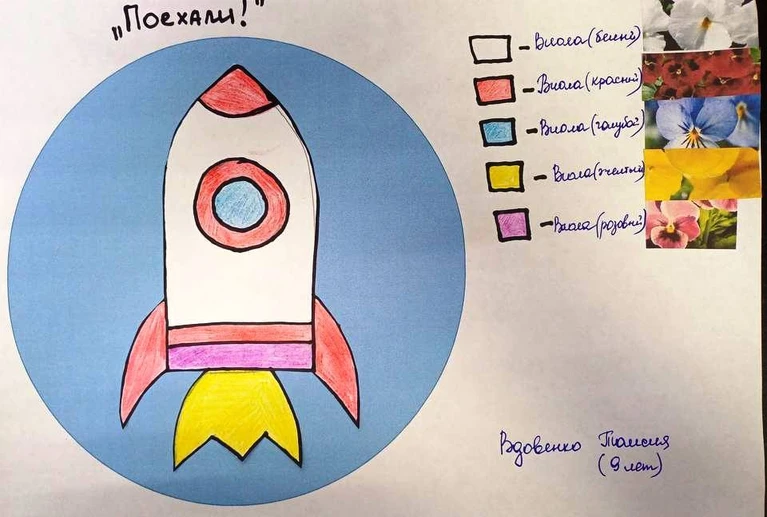 „Поехали!"
- Виола (белый)
- Виола (красный)
- Виола (голубой)
- Виола (желтый)
- Виола (розовый)
Вдовенко Таисия
(9 лет)